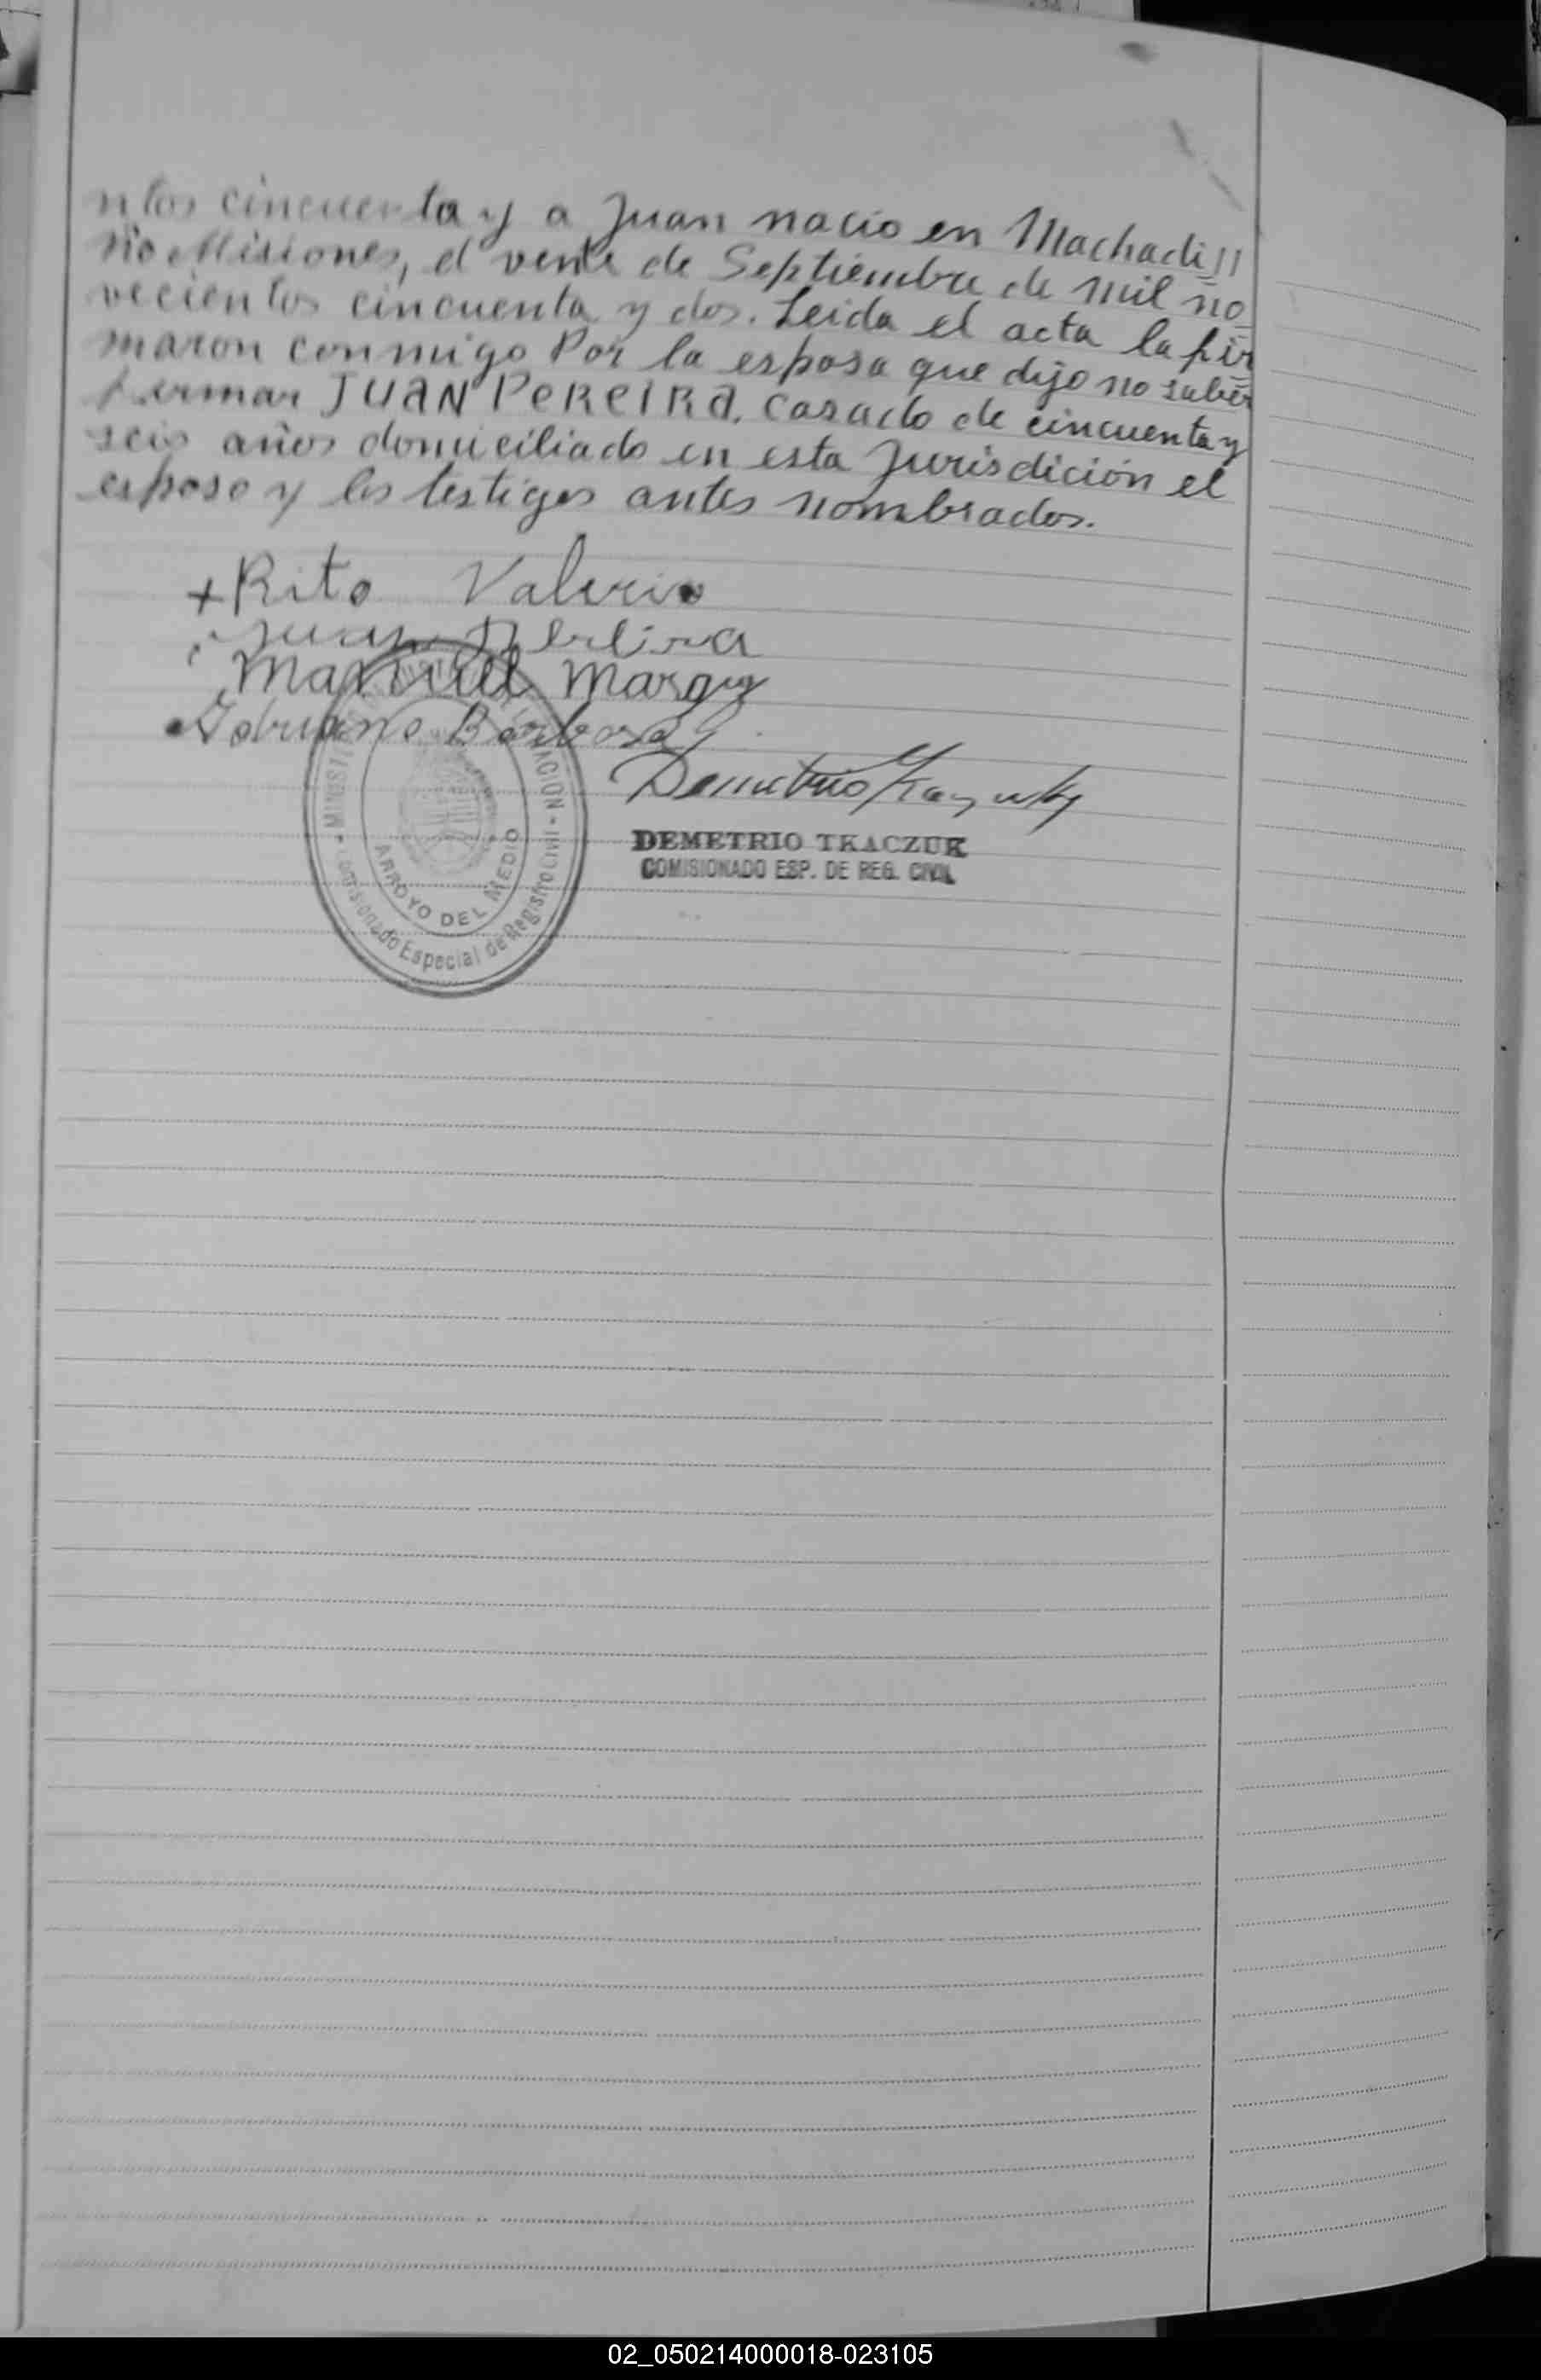 ntos cincuenta y a Juan nacio en Machadi//
nio Misiones, el vente de Septiembre de Mil no
vecientos cincuenta y dos. Leida el acta la fir
maron conmigo Por la esposa que dijo no saber
firmar JUAN PEREIRA, casado de cincuenta y
seis años domiciliado en esta Jurisdición el
esposo y los testigos antes nombrados.
+ Rito Valerio
Juan Pereira
Manuel
Barbosa
Demetrio
DEMETRIO TKACZUK
COMISIONADO ESP. DE REG. CIVIL
Comisionado Especial de Registro Civil
ARROYO DEL MEDIO
02_050214000018-023105